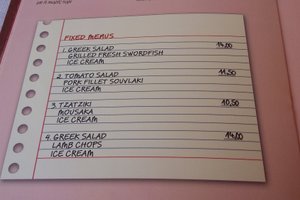 FIXED MENUS
1. GREEK SALAD 14,00
GRILLED FRESH SWORDFISH
ICE CREAM
2. TOMATO SALAD 11,50
PORK FILLET SOUVLAKI
ICE CREAM
3. TZATZIKI 10,50
MOUSAKA
ICE CREAM
4. GREEK SALAD 14,00
LAMB CHOPS
ICE CREAM